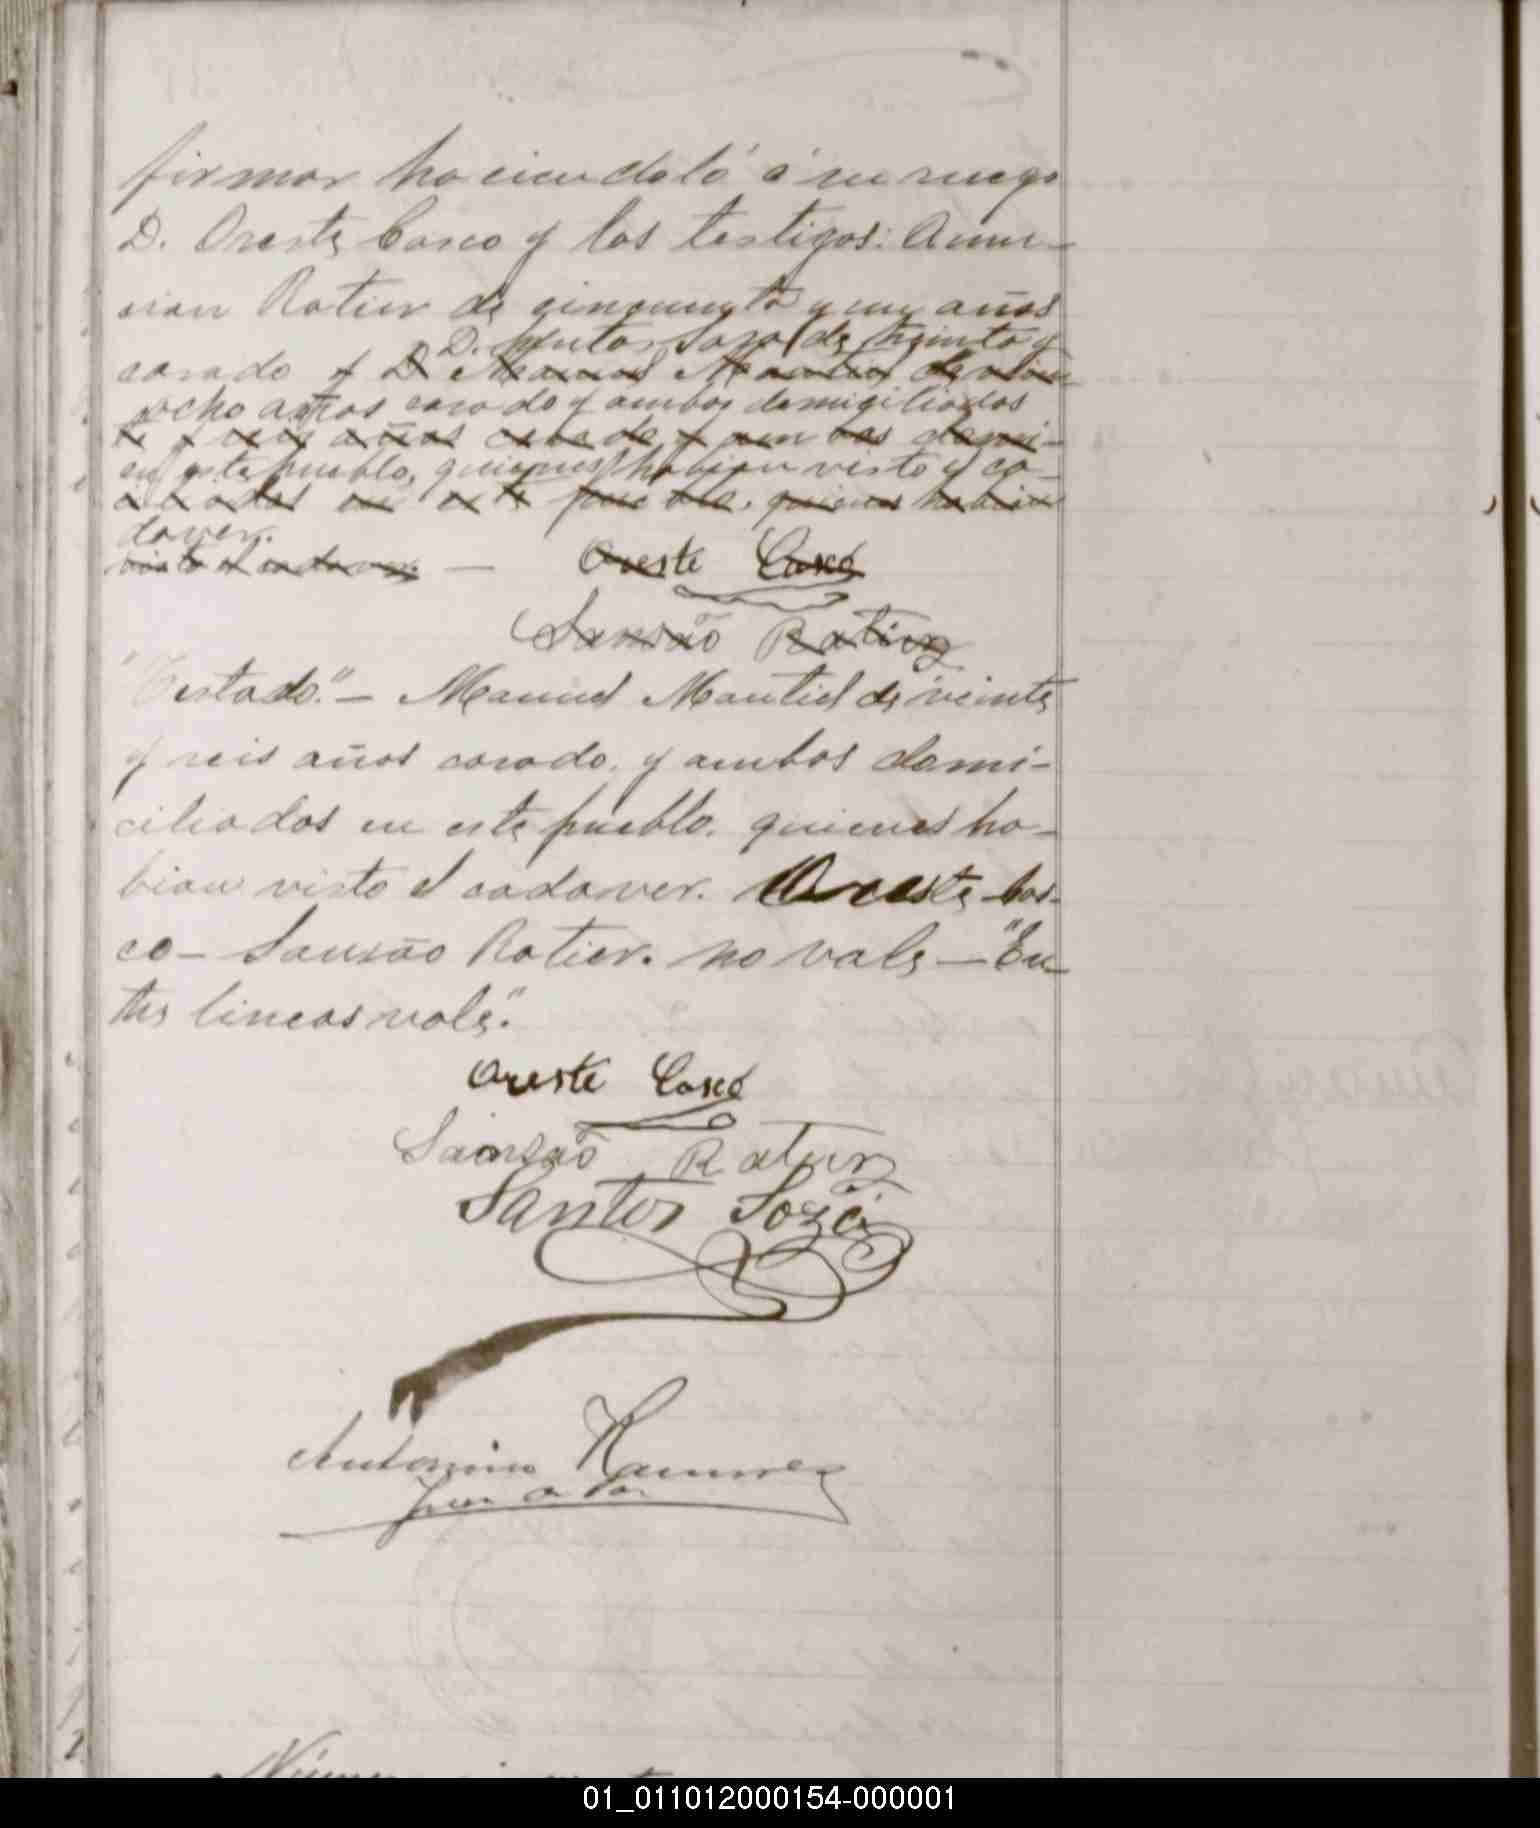 firmar haciendoló á su ruego
D. Oreste Casco y los testigos: Asun-
cion Ratier de cincuenta y un años
D. Santos Sosa de treinta y
casado y D. Manuel Mantiel de veinte
ocho años casado y ambos domiciliados
y seis años casado y ambos domi-
en este pueblo, quienes habian visto y ca-
ciliados en este pueblo. quienes habian
daver.
visto el cadaver. — Oreste Casco
Sansão Ratier
"Testado." — Manuel Mantiel de veinte
y seis años casado. y ambos domi-
ciliados en este pueblo. quienes ha-
bian visto el cadaver. Oreste Cas-
co — Sansão Ratier. no vale — "En-
tre lineas vale".
Oreste Casco
Sansão Ratier
Santos Soza
Antonino Ramirez
Juez de Paz
Número
01_011012000154-000001